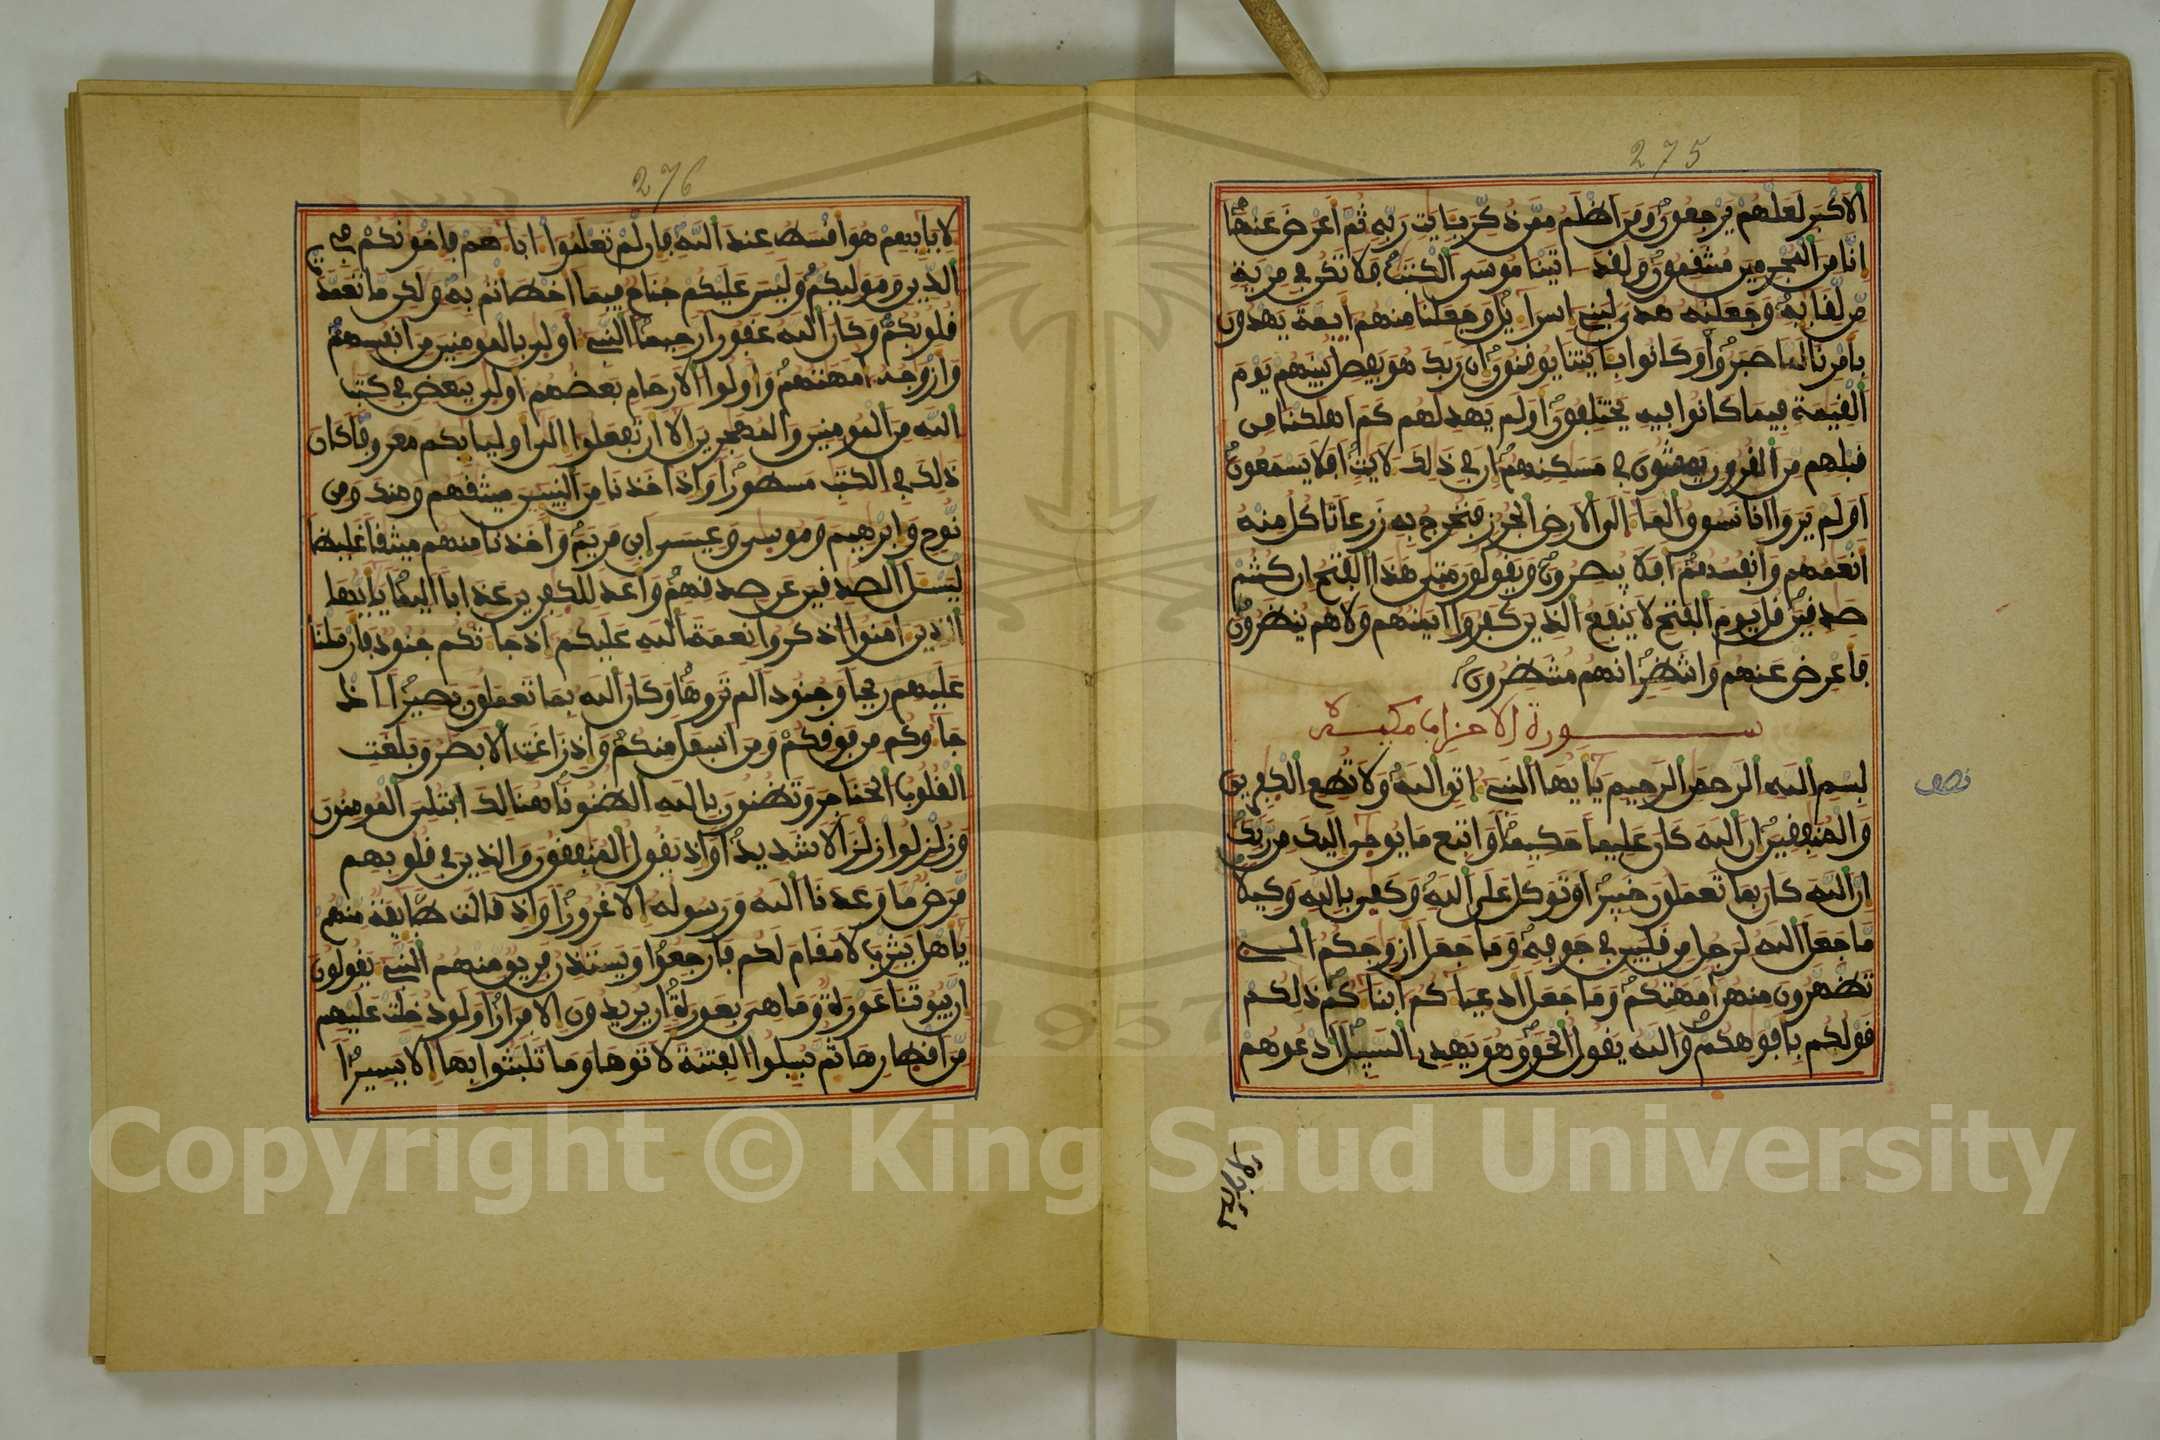 275
الاكبر لعلهم يرجعون ومن اظلم ممن ذكر بايت ربه ثم اعرض عنها
انا من المجرمين منتقمون ولقد اتينا موسى الكتب فلا تكن في مرية
من لقايه وجعلنه هدى لبني اسراءيل وجعلنا منهم ايمة يهدون
بامرنا لما صبروا وكانوا بايتنا يوقنون ان ربك هو يفصل بينهم يوم
القيمة فيما كانوا فيه يختلفون اولم يهد لهم كم اهلكنا من
قبلهم من القرون يمشون في مسكنهم ان في ذلك لايت افلا يسمعون
اولم يروا انا نسوق الماء الى الارض الجرز فنخرج به زرعا تاكل منه
انعمهم وانفسهم افلا يبصرون ويقولون متى هذا الفتح ان كنتم
صدقين قل يوم الفتح لا ينفع الذين كفروا ايمنهم ولا هم ينظرون
فاعرض عنهم وانتظر انهم منتظرون
سورة الاحزاب
بسم الله الرحمن الرحيم يايها النبي اتق الله ولا تطع الكفرين
والمنفقين ان الله كان عليما حكيما واتبع ما يوحى اليك من ربك
ان الله كان بما تعملون خبيرا وتوكل على الله وكفى بالله وكيلا
ما جعل الله لرجل من قلبين في جوفه وما جعل ازوجكم الى
تظهرون منهن امهتكم وما جعل ادعياءكم ابناءكم ذلكم
قولكم بافوهكم والله يقول الحق وهو يهدي السبيل ادعوهم
نصف
276
لاباييهم هو اقسط عند الله فان لم تعلموا اباءهم فاخونكم في
الدين ومواليكم وليس عليكم جناح فيما اخطاتم به ولكن ما تعمدت
قلوبكم وكان الله غفورا رحيما النبي اولى بالمومنين من انفسهم
وازوجه امهتهم واولوا الارحام بعضهم اولى ببعض في كتب
الله من المومنين والمهجرين الا ان تفعلوا الى اوليايكم معروفا كان
ذلك في الكتب مسطورا واذ اخذنا من النبيين ميثقهم ومنك ومن
نوح وابرهيم وموسى وعيسى ابن مريم واخذنا منهم ميثقا غليظا
ليسل الصدقين عن صدقهم واعد للكفرين عذابا اليما يايها
الذين امنوا اذكروا نعمة الله عليكم اذ جاءتكم جنود فارسلنا
عليهم ريحا وجنودا لم تروها وكان الله بما تعملون بصيرا اذ
جاءوكم من فوقكم ومن اسفل منكم واذ زاغت الابصر وبلغت
القلوب الحناجر وتظنون بالله الظنونا هنالك ابتلي المومنون
وزلزلوا زلزالا شديدا واذ يقول المنفقون والذين في قلوبهم
مرض ما وعدنا الله ورسوله الا غرورا واذ قالت طايفة منهم
ياهل يثرب لا مقام لكم فارجعوا ويستذن فريق منهم النبي يقولون
ان بيوتنا عورة وما هي بعورة ان يريدون الا فرارا ولو دخلت عليهم
من اقطارها ثم سيلوا الفتنة لاتوها وما تلبثوا بها الا يسيرا
1957
Copyright © King Saud University